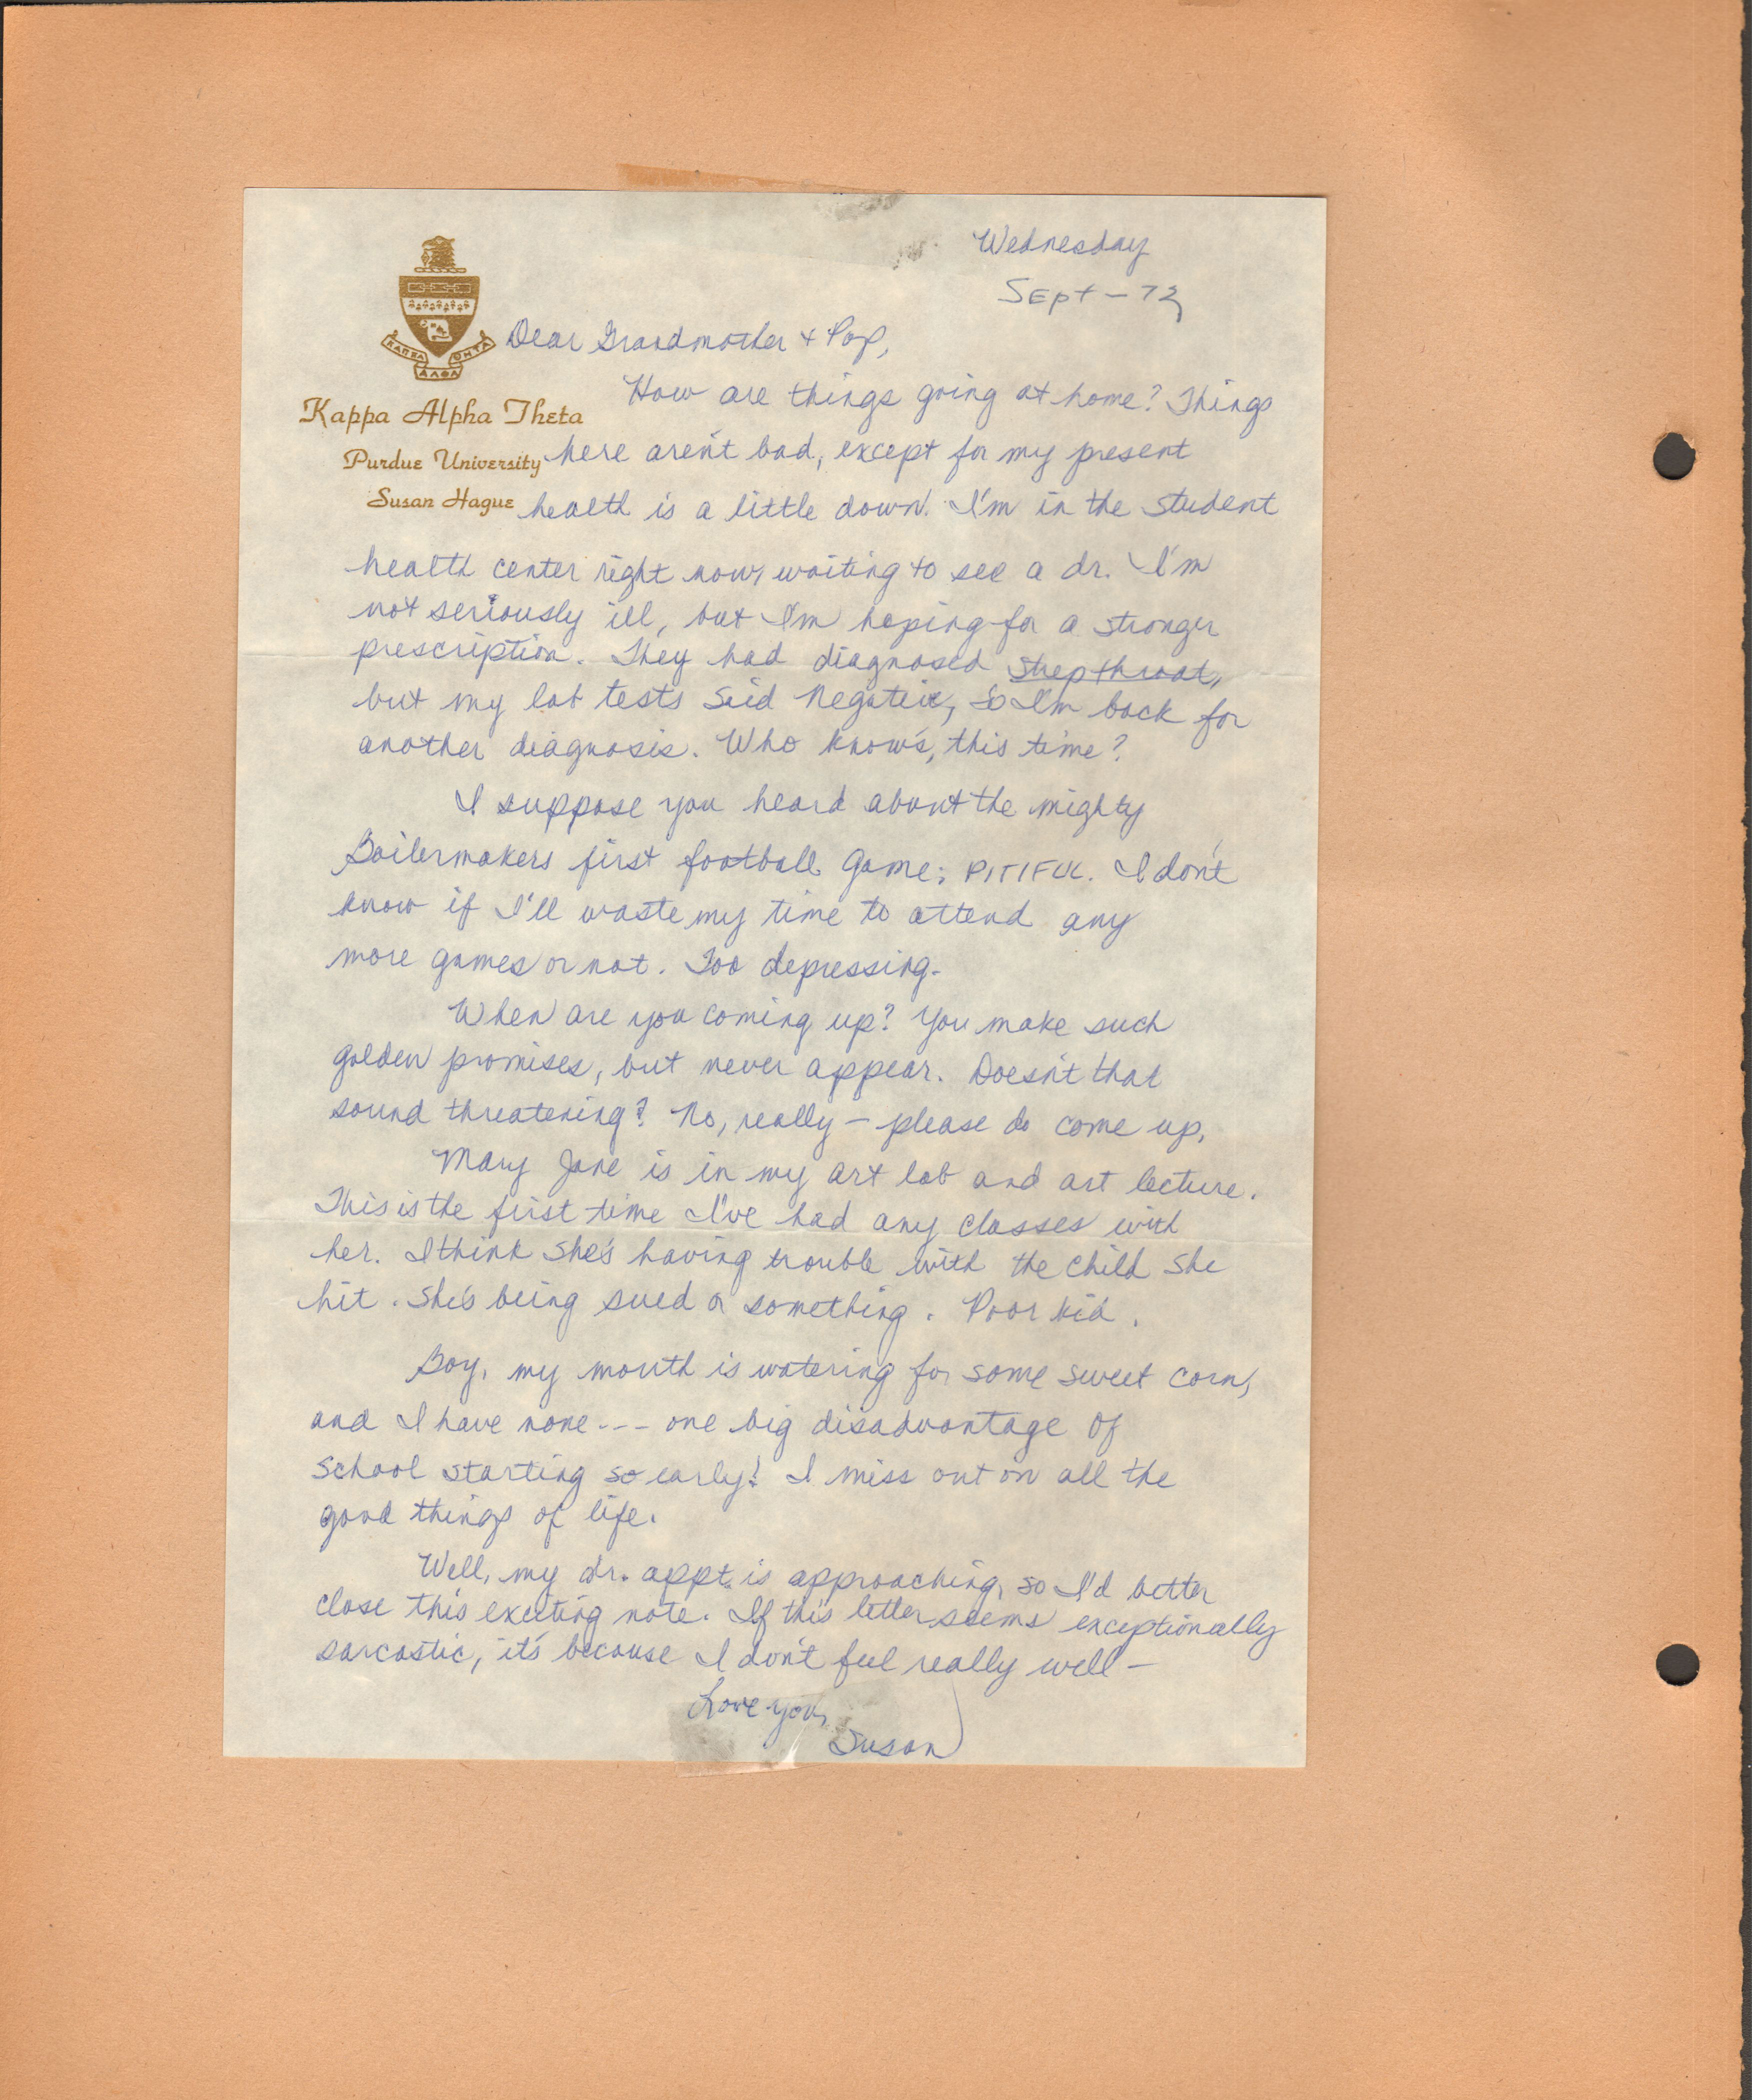 Wednesday
Sept - 72
Dear Grandmother + Pop,
How are things going at home? Things
Kappa Alpha Theta
here aren't bad, except for my present
Purdue University
health is a little down. I'm in the student
Susan Hague
health center right now, waiting to see a dr. I'm
not seriously ill, but I'm hoping for a stronger
prescription. They had diagnosed strep throat,
but my lab tests said negative, so I'm back for
another diagnosis. Who knows, this time?
I suppose you heard about the mighty
Boilermakers first football game; PITIFUL. I don't
know if I'll waste my time to attend any
more games or not. Too depressing.
When are you coming up? You make such
golden promises, but never appear. Doesn't that
sound threatening? No, really - please do come up.
Mary Jane is in my art lab and art lecture.
This is the first time I've had any classes with
her. I think she's having trouble with the child she
hit. She's being sued or something. Poor kid.
Boy, my mouth is watering for some sweet corn,
and I have none --- one big disadvantage of
school starting so early! I miss out on all the
good things of life.
Well, my dr. appt. is approaching, so I'd better
close this exciting note. If this letter seems exceptionally
sarcastic, it's because I don't feel really well -
Love you,
Susan